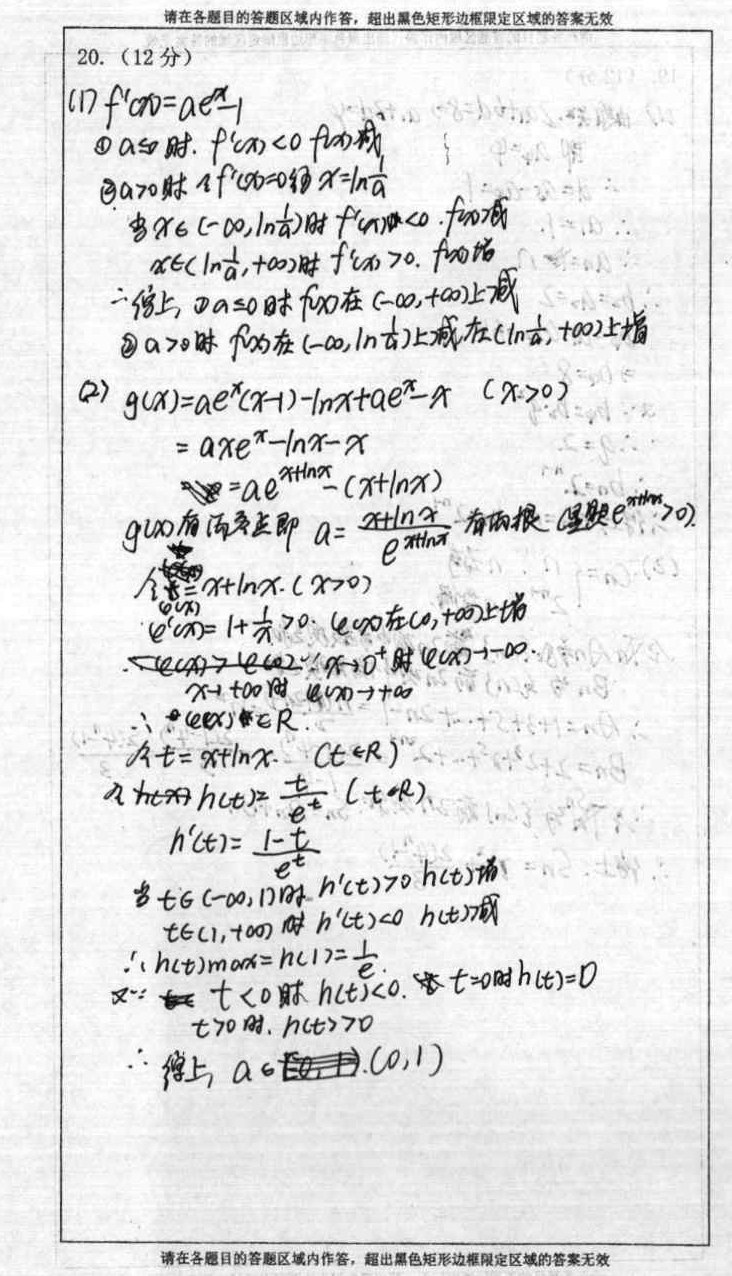 请在各题目的答题区域内作答，超出黑色矩形边框限定区域的答案无效
20.（12分）
(1) f'(x)=ae^x-1
① a≤0时. f'(x)<0 f(x)减
②a>0时 令f'(x)=0得 x=ln1/a
当x∈(-∞,ln1/a)时 f'(x)<0. f(x)减
x∈(ln1/a,+∞)时 f'(x)>0. f(x)增
∴综上, ①a≤0时 f(x)在(-∞,+∞)上减
② a>0时 f(x)在(-∞,ln1/a)上减,在(ln1/a,+∞)上增
(2) g(x)=ae^x(x-1)-lnx+ae^x-x (x>0)
=axe^x-lnx-x
=ae^(x+lnx)-(x+lnx)
g(x)有两零点即 a=(x+lnx)/e^(x+lnx) 有两根 (显然e^(x+lnx)>0).
令φ(x)=x+lnx.(x>0)
φ'(x)=1+1/x>0. φ(x)在(0,+∞)上增
∵x→0⁺时φ(x)→-∞.
x→+∞时 φ(x)→+∞
∴φ(x)∈R.
令t=x+lnx. (t∈R)
令h(t)=t/e^t (t∈R)
h'(t)=(1-t)/e^t
当t∈(-∞,1)时 h'(t)>0 h(t)增
t∈(1,+∞)时 h'(t)<0 h(t)减
∴h(t)max=h(1)=1/e.
又∵ t<0时 h(t)<0. t=0时h(t)=0
t>0时. h(t)>0
∴综上, a∈(0,1)
请在各题目的答题区域内作答，超出黑色矩形边框限定区域的答案无效